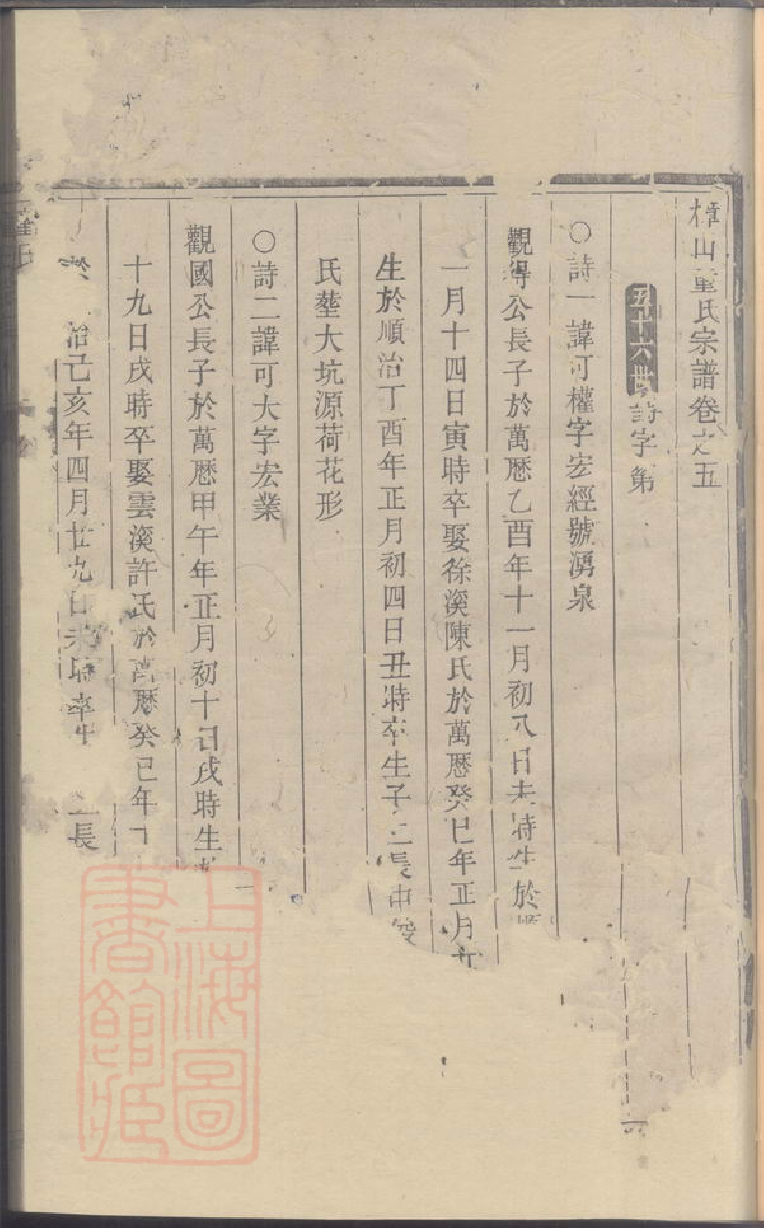 樟山童氏宗譜卷之五
五十六世詩字第
○詩一諱可權字宏經號湧泉
觀得公長子於萬厯乙酉年十一月初八日未時生於順
一月十四日寅時卒娶徐溪陳氏於萬厯癸巳年正月廿
生於順治丁酉年正月初四日丑時卒生子二長
氏塟大坑源荷花形
○詩二諱可大字宏業
觀國公長子於萬厯甲午年正月初十日戌時生
十九日戌時卒娶雲溪許氏於萬厯癸巳年
於 治己亥年四月廿九日未時卒 長
上海圖書館藏